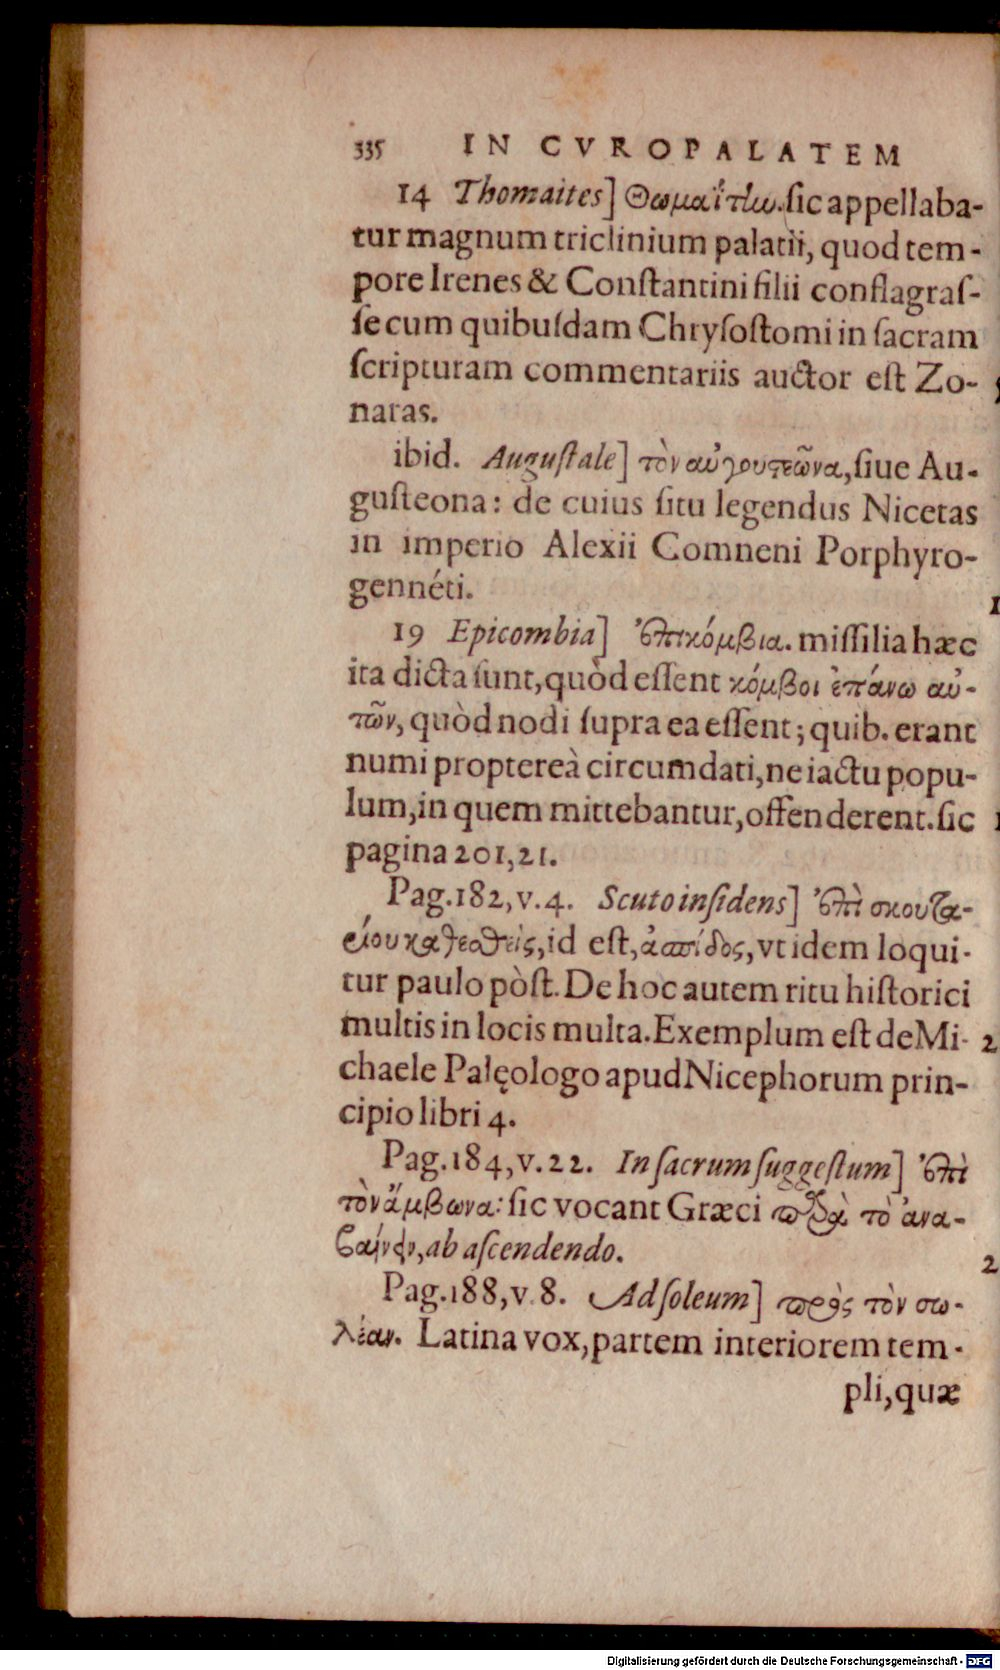 335 IN CVROPALATEM
14 Thomaites] Θωμαΐτην. ſic appellaba-
tur magnum triclinium palatii, quod tem-
pore Irenes & Conſtantini filii conflagraſ-
ſe cum quibuſdam Chryſoſtomi in ſacram
ſcripturam commentariis auctor eſt Zo-
naras.
ibid. Auguſtale] τὸν αὐγουστεῶνα, ſiue Au-
guſteona: de cuius ſitu legendus Nicetas
in imperio Alexii Comneni Porphyro-
gennéti.
19 Epicombia] ἐπικόμβια. miſſilia hæc
ita dicta ſunt, quòd eſſent κόμβοι ἐπάνω αὐ-
τῶν, quòd nodi ſupra ea eſſent; quib. erant
numi proptereà circumdati, ne iactu popu-
lum, in quem mittebantur, offenderent. ſic
pagina 201, 21.
Pag. 182, v. 4. Scuto inſidens] ἐπὶ σκουτα-
ρίου καθεσθεὶς, id eſt, ἀσπίδος, vt idem loqui-
tur paulo pòſt. De hoc autem ritu hiſtorici
multis in locis multa. Exemplum eſt de Mi-
chaele Palęologo apud Nicephorum prin-
cipio libri 4.
Pag. 184, v. 22. In ſacrum ſuggeſtum] ἐπὶ
τὸν ἄμβωνα: ſic vocant Græci παρὰ τὸ ἀνα-
βαίνειν, ab aſcendendo.
Pag. 188, v. 8. Ad ſoleum] πρὸς τὸν σω-
λέαν. Latina vox, partem interiorem tem-
pli, quæ
Digitalisierung gefördert durch die Deutsche Forschungsgemeinschaft - DFG